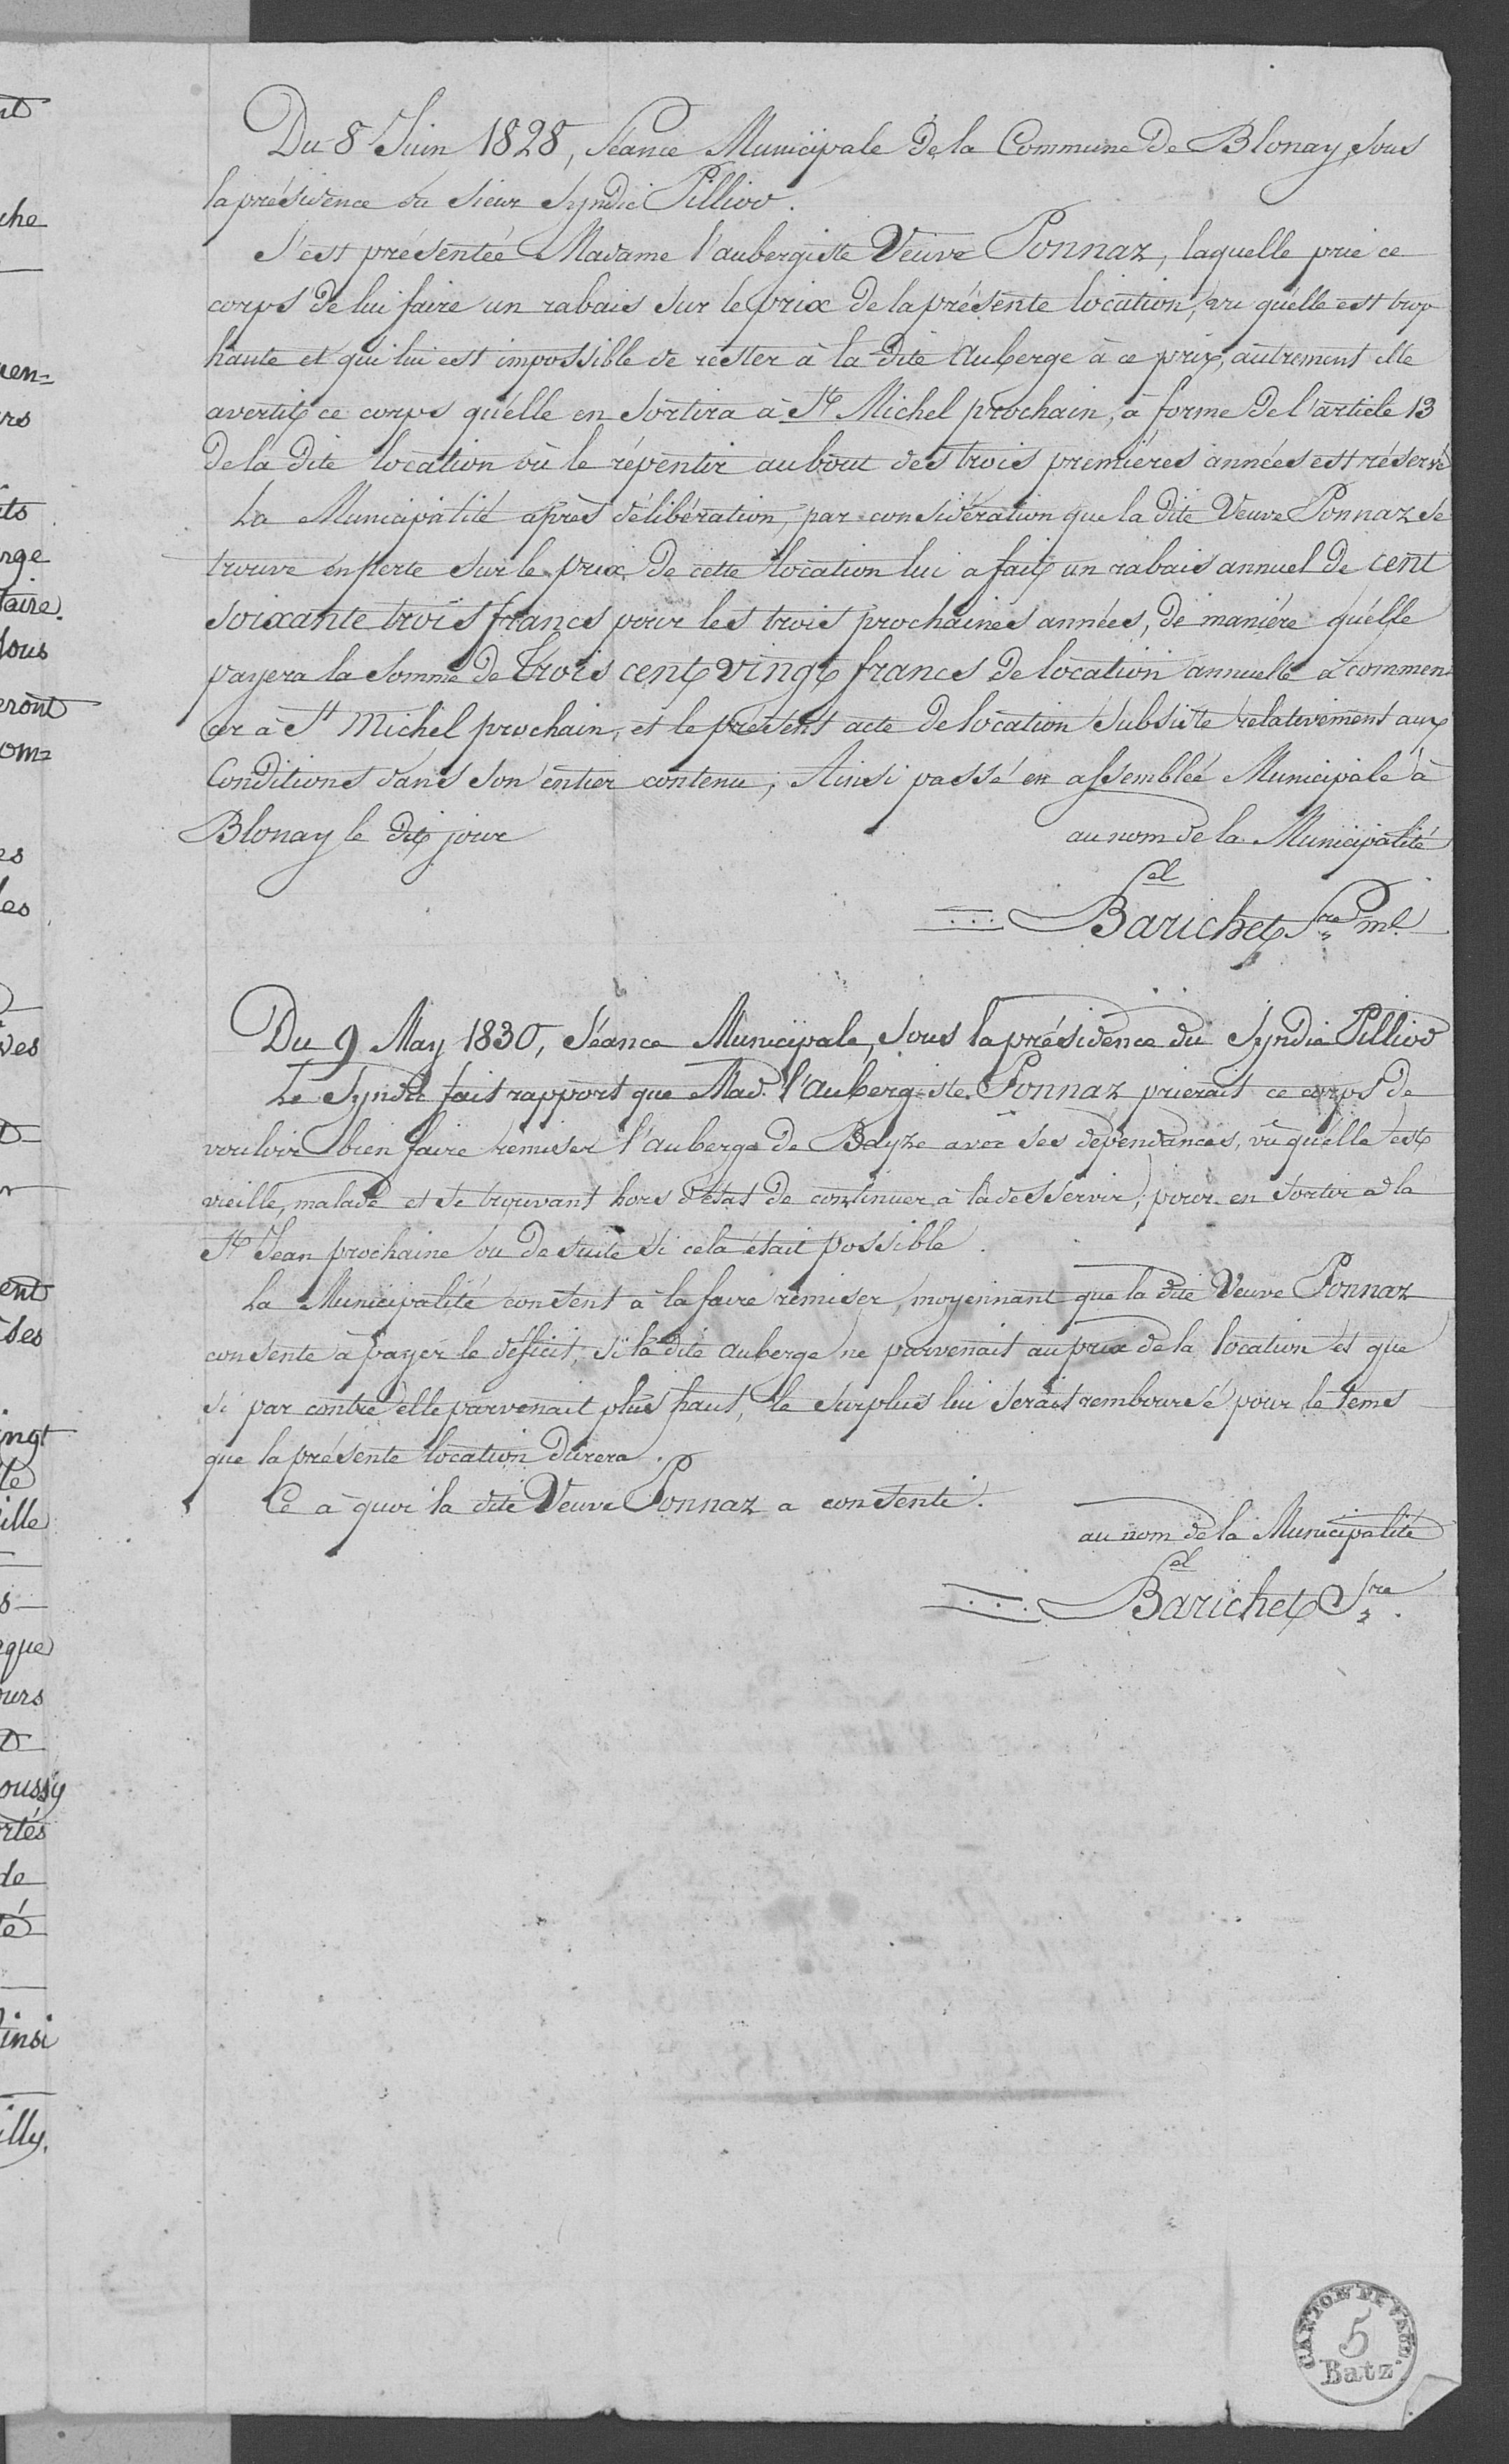 Du 8 Juin 1828, Séance Municipale de la Commune de Blonay, sous
la présidence du sieur Syndic Pilliod.
S'est présentée Madame l'aubergiste Veuve Ponnaz, laquelle prie ce
corps de lui faire un rabais sur le prix de la présente location, vu quélle est trop
haute et qui lui est impossible de rester à la dite Auberge à ce prix, autrement elle
avertit ce corps quélle en sortira à St. Michel prochain, à forme de l'article 13
de la dite location où le répentir au bout des trois premières années est réservé
La Municipalité après délibération, par considération que la dite Veuve Ponnaz se
trouve en perte sur le prix de cette location lui a fait un rabais annuel de cent
soixante trois francs pour les trois prochaines années, de manière quélle
payera la somme de trois cent vingt francs de location annuelle à commen
cer à St Michel prochain, et le présent acte de location subsiste relativement aux
Conditions dans son entier contenu; Ainsi passé en assemblée Municipale à
Blonay le dit jour
au nom de la Municipalité
Barichet Sre ml
Du 9 May 1830, Séance Municipale, sous la présidence du Syndic Pilliod
Le Syndic fait rapport que Mad. l'Aubergiste Ponnaz prierait ce corps de
vouloir bien faire remiser l'auberge de Bayze avec ses dépendances, vû quélle est
vieille, malade et se trouvant hors d'état de continuer à la desservir, pour en sortir à la
St Jean prochaine ou de suite si cela était possible.
La Municipalité consent à la faire remiser, moyennant que la dite Veuve Ponnaz
consente à payer le déficit, si la dite auberge ne parvenait au prix de la location et que
si par contre elle parvenait plus haut, le surplus lui serait remboursé pour le tems
que la présente location durera.
Ce à quoi la dite Veuve Ponnaz a consenti.
au nom de la Municipalité
Barichet Sre.
CANTON DE VAUD
5
Batz